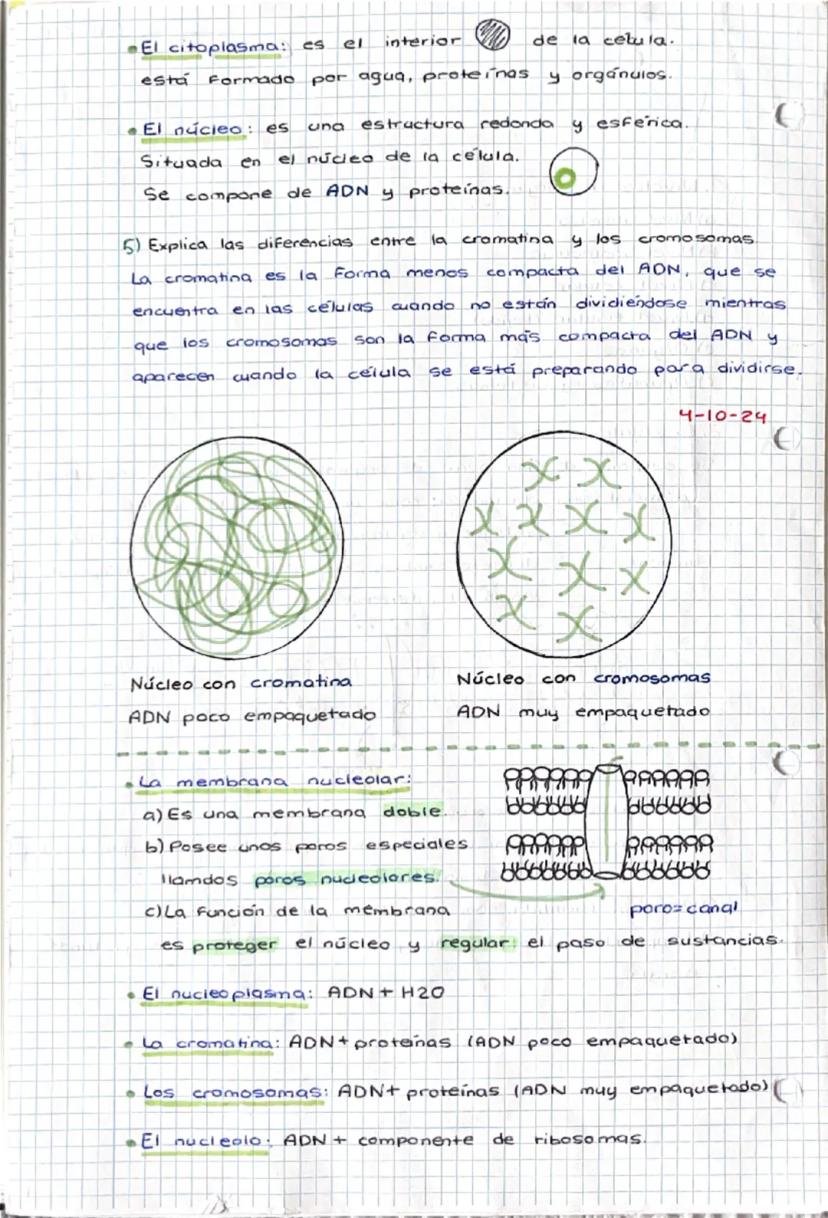 El citoplasma: es el interior de la celula.
está Formado por agua, proteínas y orgánulos.
El núcleo: es una estructura redonda y esférica.
Situada en el núcleo de la célula.
Se compone de ADN y proteínas.
5) Explica las diferencias entre la cromatina y los cromosomas
La cromatina es la Forma menos compacta del ADN, que se
encuentra en las células cuando no están dividiéndose mientras
que los cromosomas son la Forma más compacta del ADN y
aparecen cuando la célula se está preparando para dividirse.
4-10-24
Núcleo con cromatina
ADN poco empaquetado
Núcleo con cromosomas
ADN muy empaquetado
La membrana nucleolar:
a) Es una membrana doble.
b) Posee unos poros especiales
llamdos poros nucleolares.
poro=canal
c) La Función de la membrana
es proteger el núcleo y regular el paso de sustancias.
El nucleoplasma: ADN + H2O
La cromatina: ADN + proteínas (ADN poco empaquetado)
Los cromosomas: ADN + proteínas (ADN muy empaquetado)
El nucleolo: ADN + componente de ribosomas.